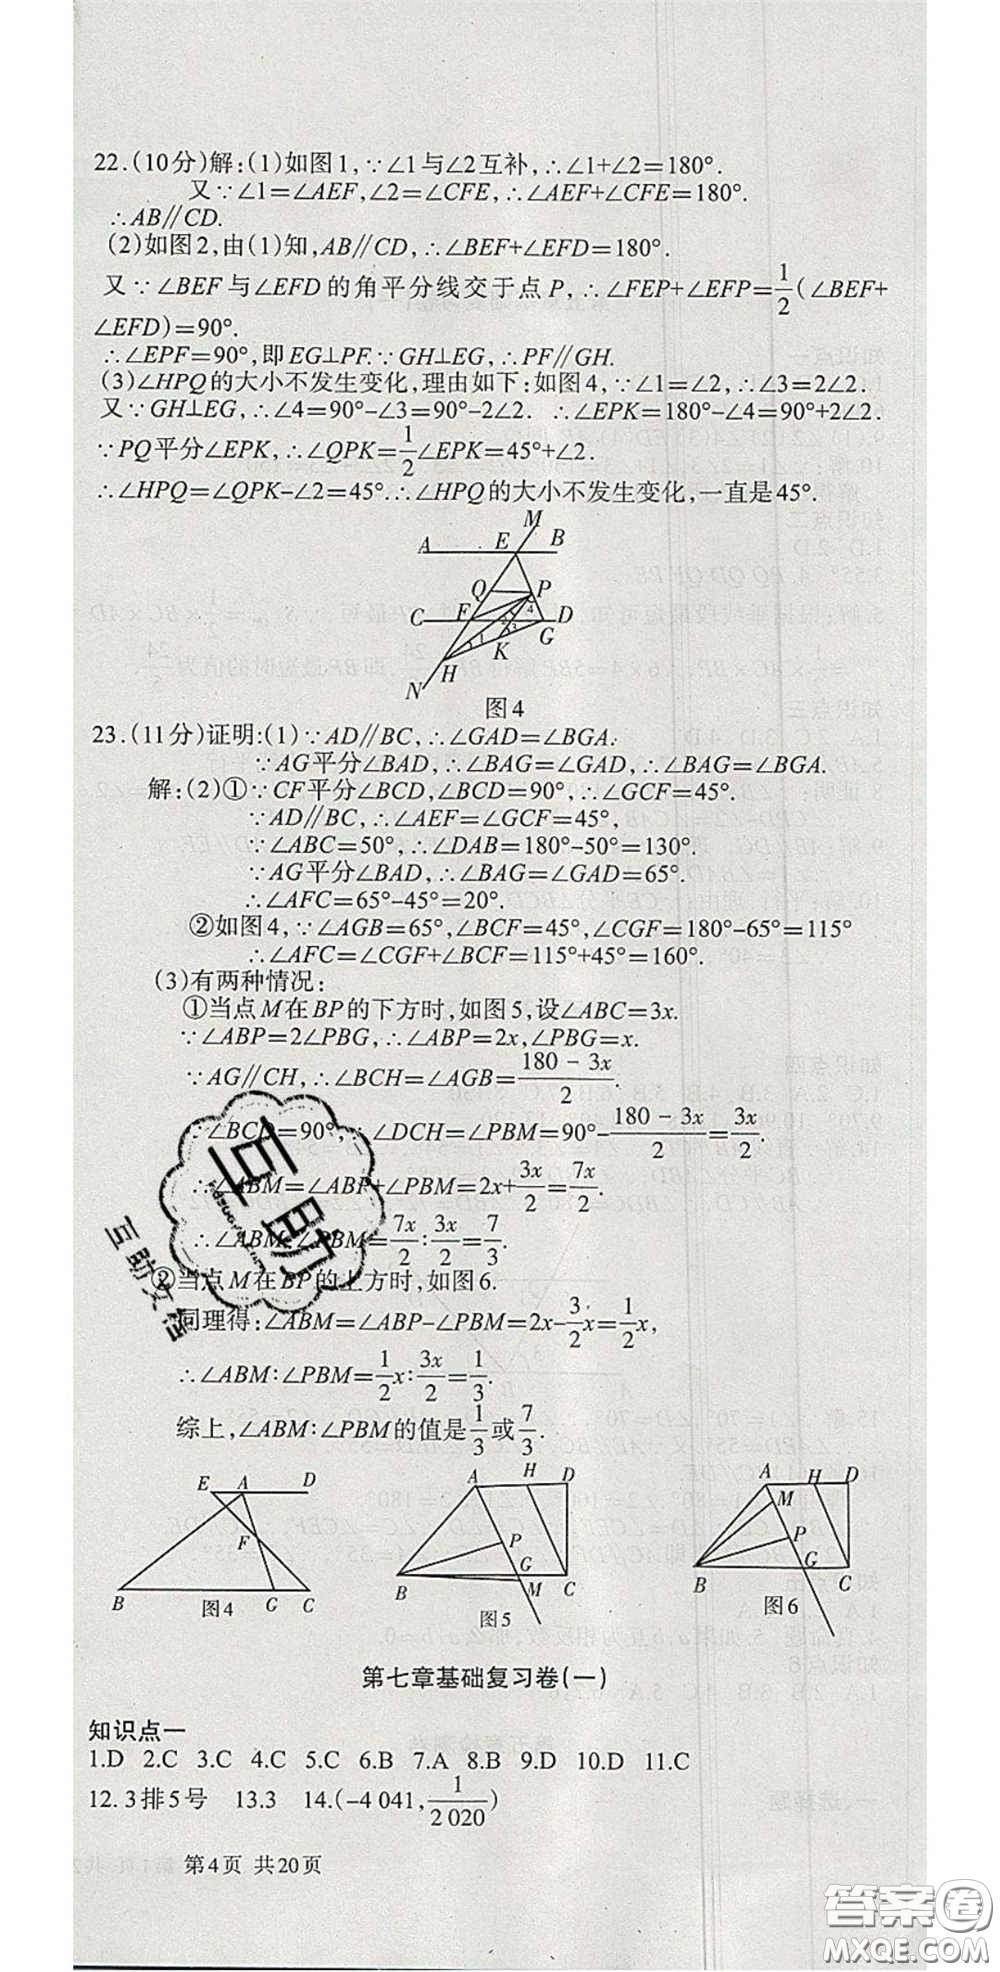 22.(10分)解:(1)如图1,∵∠1与∠2互补,∴∠1+∠2=180°.
又∵∠1=∠AEF,∠2=∠CFE,∴∠AEF+∠CFE=180°.
∴AB∥CD.
(2)如图2,由(1)知,AB∥CD,∴∠BEF+∠EFD=180°.
又∵∠BEF与∠EFD的角平分线交于点P,∴∠FEP+∠EFP=1/2(∠BEF+
∠EFD)=90°.
∴∠EPF=90°,即EG⊥PF.∵GH⊥EG,∴PF∥GH.
(3)∠HPQ的大小不发生变化,理由如下:如图4,∵∠1=∠2,∴∠3=2∠2.
又∵GH⊥EG,∴∠4=90°-∠3=90°-2∠2. ∴∠EPK=180°-∠4=90°+2∠2.
∵PQ平分∠EPK,∴∠QPK=1/2∠EPK=45°+∠2.
∴∠HPQ=∠QPK-∠2=45°.∴∠HPQ的大小不发生变化,一直是45°.
M
A E B
Q P
4
C F 2 D
1 3 G
K
H
N
图4
23.(11分)证明:(1)∵AD∥BC,∴∠GAD=∠BGA.
∵AG平分∠BAD,∴∠BAG=∠GAD,∴∠BAG=∠BGA.
解:(2)①∵CF平分∠BCD,∠BCD=90°,∴∠GCF=45°.
∵AD∥BC,∴∠AEF=∠GCF=45°,
∵∠ABC=50°,∴∠DAB=180°-50°=130°.
∵AG平分∠BAD,∴∠BAG=∠GAD=65°.
∴∠AFC=65°-45°=20°.
②如图4,∵∠AGB=65°,∠BCF=45°,∠CGF=180°-65°=115°
∴∠AFC=∠CGF+∠BCF=115°+45°=160°.
(3)有两种情况:
①当点M在BP的下方时,如图5,设∠ABC=3x.
∵∠ABP=2∠PBG,∴∠ABP=2x,∠PBG=x.
∵AG∥CH,∴∠BCH=∠AGB=(180-3x)/2.
∵∠BCD=90°,∴∠DCH=∠PBM=90°-(180-3x)/2=3x/2.
∴∠ABM=∠ABP+∠PBM=2x+3x/2=7x/2.
∴∠ABM:∠PBM=7x/2:3x/2=7/3.
②当点M在BP的上方时,如图6.
同理得:∠ABM=∠ABP-∠PBM=2x-3/2x=1/2x,
∴∠ABM:∠PBM=1/2x:3x/2=1/3.
综上,∠ABM:∠PBM的值是1/3或7/3.
E A D
F
B G C
图4
A H D
P
G
B M C
图5
A H D
M
P
B G C
图6
第七章基础复习卷(一)
知识点一
1.D 2.C 3.C 4.C 5.C 6.B 7.A 8.B 9.D 10.D 11.C
12.3排5号 13.3 14.(-4 041,1/2 020)
第4页 共20页
互助
互助文档
答案圈
MXQE.COM